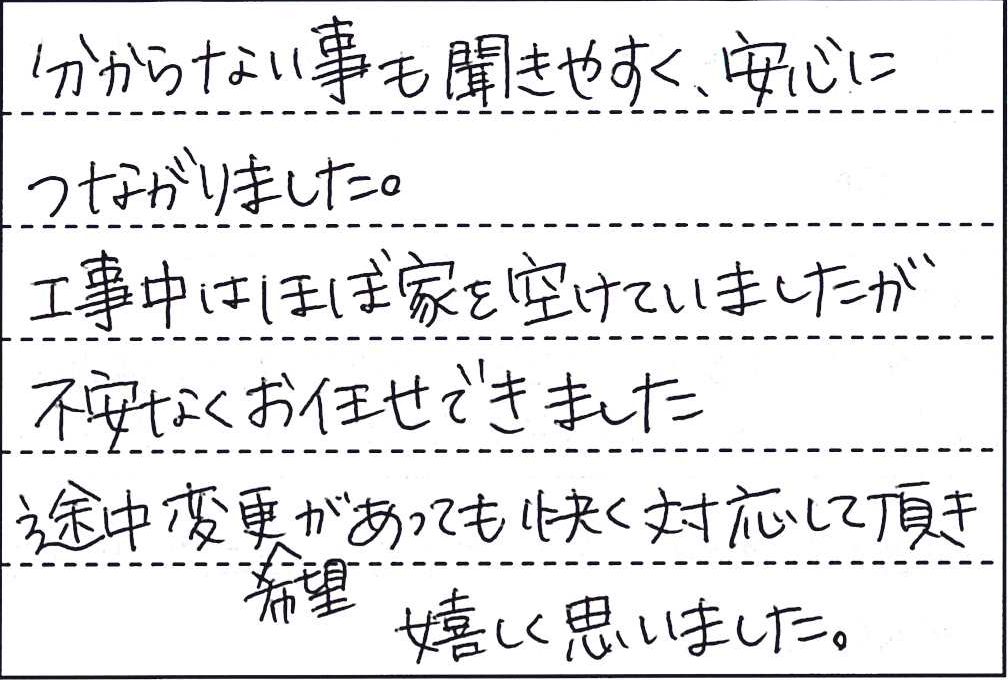 分からない事も聞きやすく、安心に
つながりました。
工事中はほぼ家を空けていましたが
不安なくお任せできました
途中変更があっても快く対応して頂き
希望
嬉しく思いました。